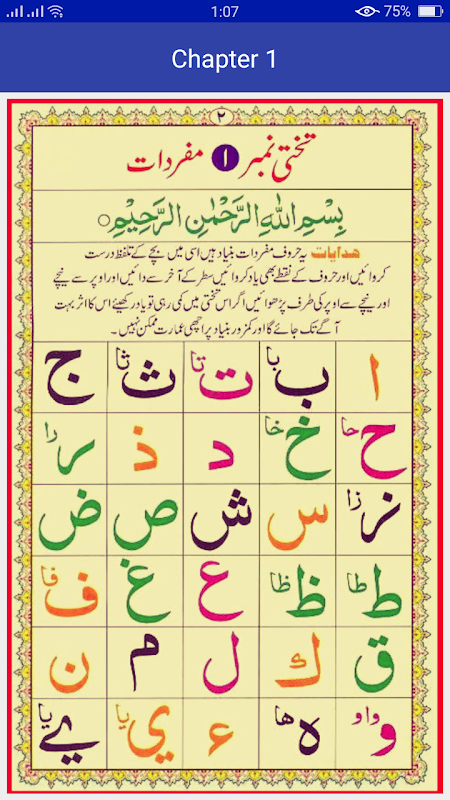 1:07 75%
Chapter 1
۲
تختی نمبر ۱ مفردات
بِسْمِ اللّٰهِ الرَّحْمٰنِ الرَّحِيْمِ ○
ھدایات یہ حروف مفردات بنیاد ہیں اسی میں بچے کے تلفظ درست
کروائیں اور حروف کے نقطے بھی یاد کروائیں سطر کے آخر سے دائیں اور اوپر سے نیچے
اور نیچے سے اوپر کی طرف پڑھوائیں اگر اس تختی میں کمی رہی تو یاد رکھیئے اس کا اثر بہت
آگے تک جائے گا اور کمزور بنیاد پر اچھی عمارت ممکن نہیں۔
ا ب با ت تا ث ثا ج
ح حا خ خا د ذ ر را
ز زا س ش ص ض
ط طا ظ ظا ع غ ف فا
ق ك ل م ن
و واو ه ها ء ي يا ے يا